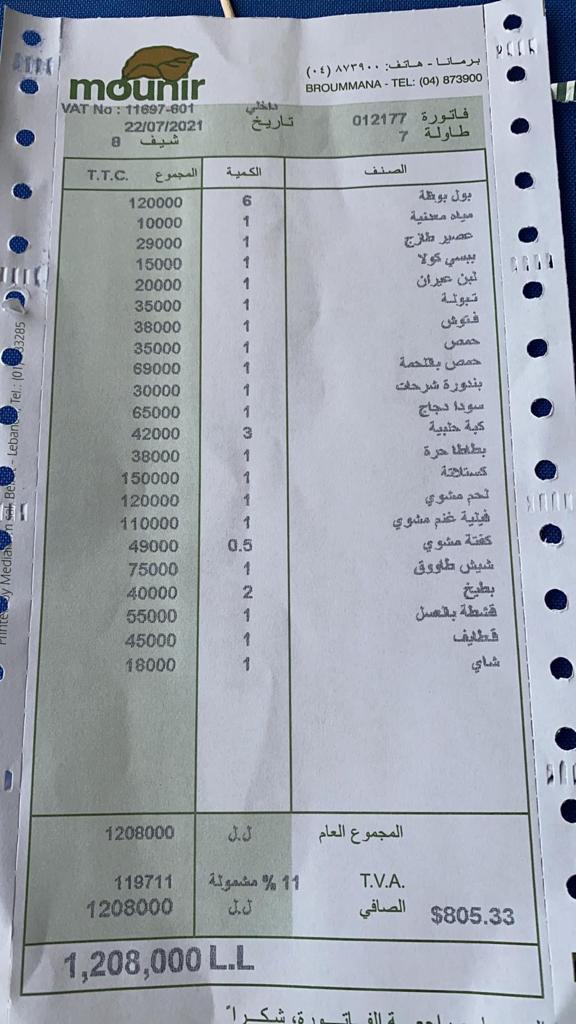 mounir
برمانا - هاتف: ٨٧٣٩٠٠ (٠٤)
BROUMMANA - TEL: (04) 873900
VAT No : 11697-601
داخلي
فاتورة 012177
تاريخ 22/07/2021
طاولة 7
شيف 8
الصنف الكمية المجموع T.T.C.
بول بوظة 6 120000
مياه معدنية 1 10000
عصير طازج 1 29000
بيبسي كولا 1 15000
لبن عيران 1 20000
تبولة 1 35000
فتوش 1 38000
حمص 1 35000
حمص باللحمة 1 69000
بندورة شرحات 1 30000
سودا دجاج 1 65000
كبة حلبية 3 42000
بطاطا حرة 1 38000
كستلاتة 1 150000
لحم مشوي 1 120000
فيلية غنم مشوي 1 110000
كفتة مشوي 0.5 49000
شيش طاووق 1 75000
بطيخ 2 40000
قشطة بالعسل 1 55000
قطايف 1 45000
شاي 1 18000
المجموع العام ل.ل 1208000
T.V.A. 11 % مشمولة 119711
الصافي ل.ل 1208000
$805.33
1,208,000 L.L
الفاتورة، شكراً